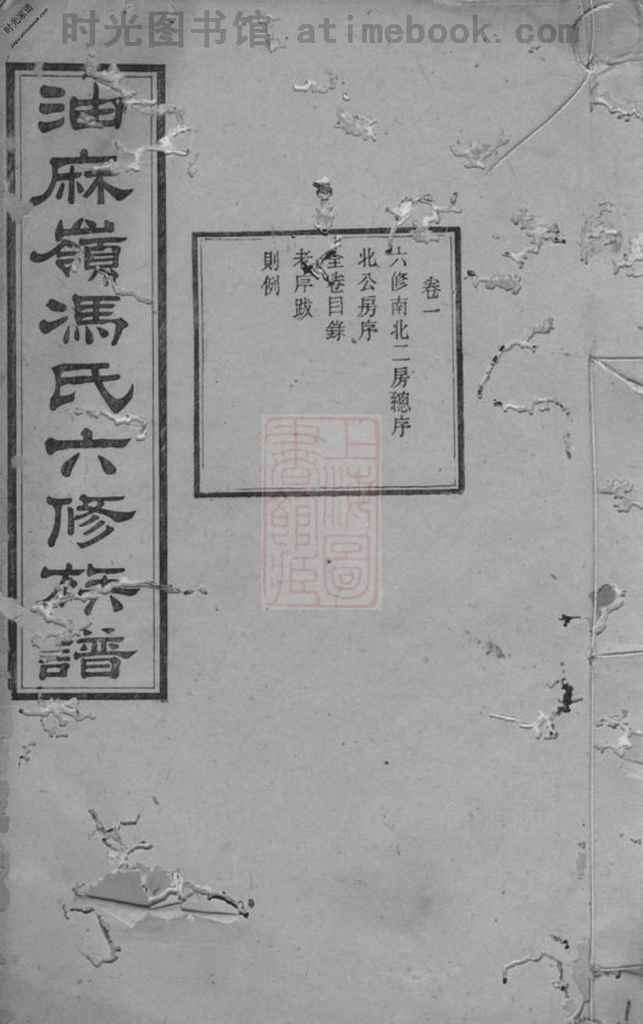 时光图书馆 atimebook.com
油麻嶺馮氏六修族譜
卷一
六修南北二房總序
北公房序
全卷目錄
老序跋
則例